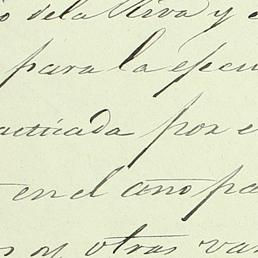 de la Riva y
para la épocu
acticada por e
en el año pa
y otras var